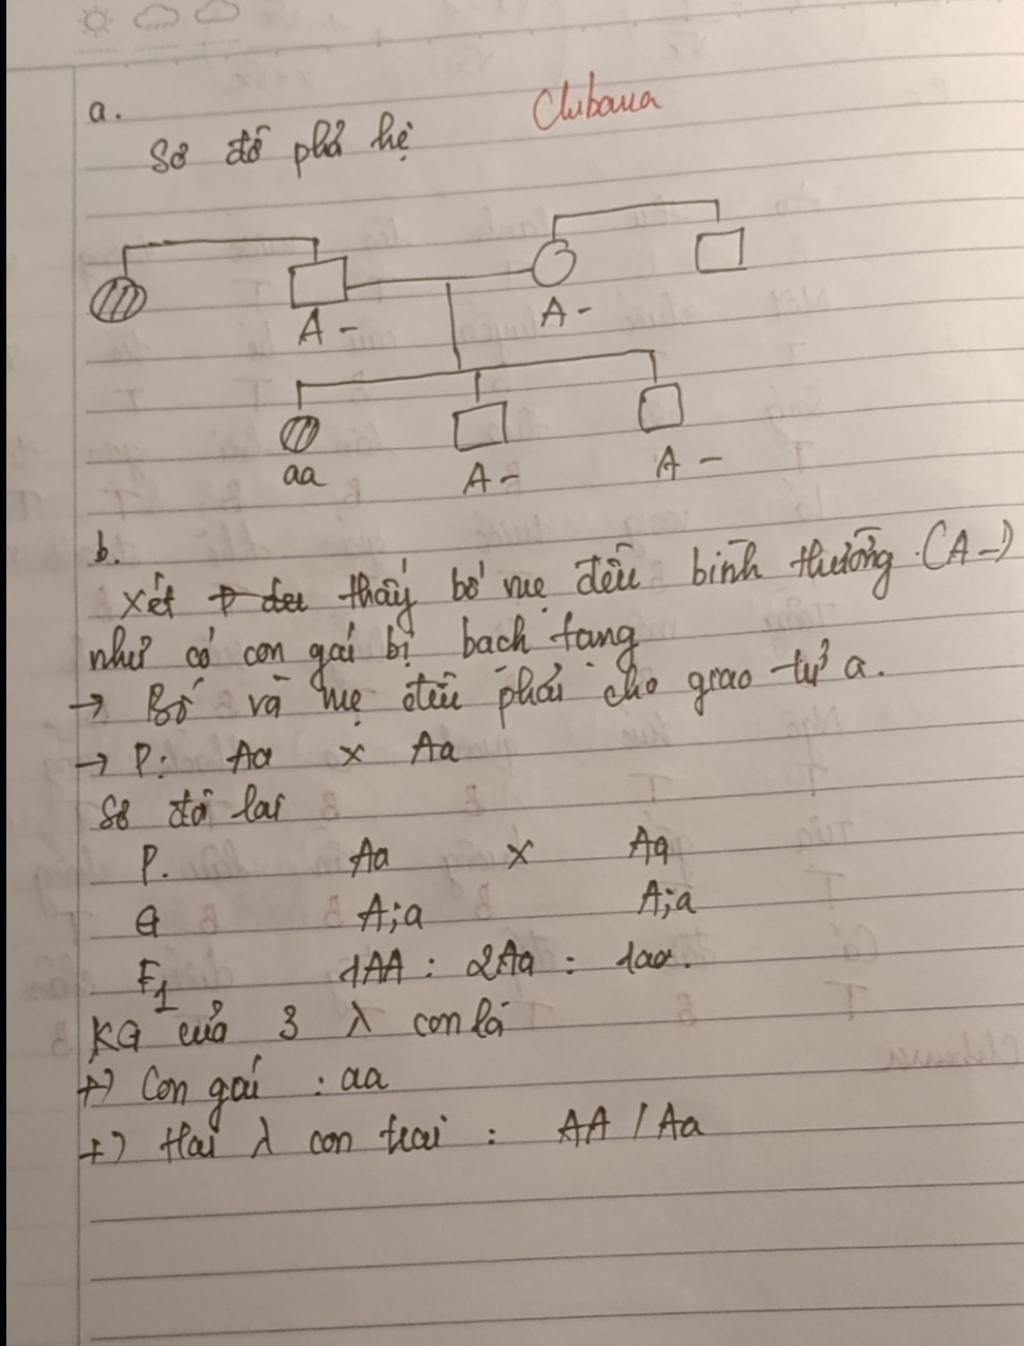 a.
Clubaua
Sơ đồ phả hệ
A -
A -
aa
A -
A -
b.
Xét thấy bố mẹ đều bình thường (A-)
như có con gái bị bạch tạng
→ Bố và mẹ đều phải cho giao tử a.
→ P: Aa x Aa
Sơ đồ lai
P. Aa x Aa
G A;a A;a
F1 1AA : 2Aa : 1aa.
KG của 3 λ con là
+) Con gái : aa
+) Hai λ con trai : AA / Aa